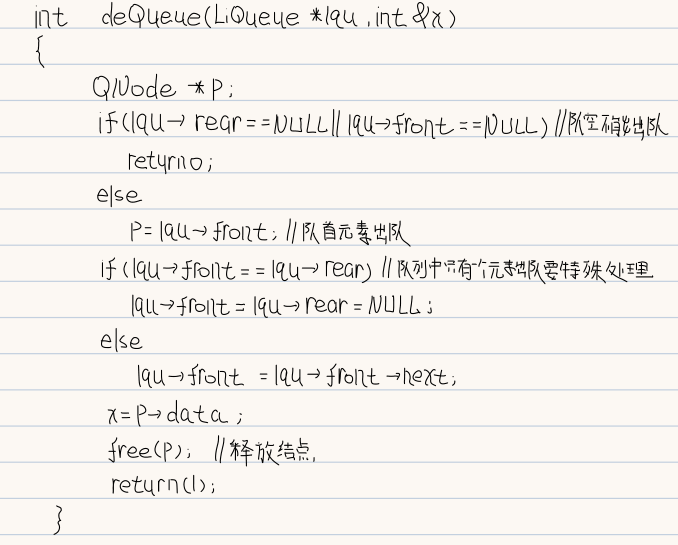 int deQueue(LiQueue *lqu,int &x)
{
QNode *p;
if(lqu→rear==NULL||lqu→front==NULL) //队空不能出队
return0;
else
p=lqu→front; //队首元素出队
if(lqu→front==lqu→rear) //队列中只有个元素出队要特殊处理
lqu→front=lqu→rear=NULL;
else
lqu→front=lqu→front→next;
x=p→data;
free(p); //释放结点.
return(1);
}